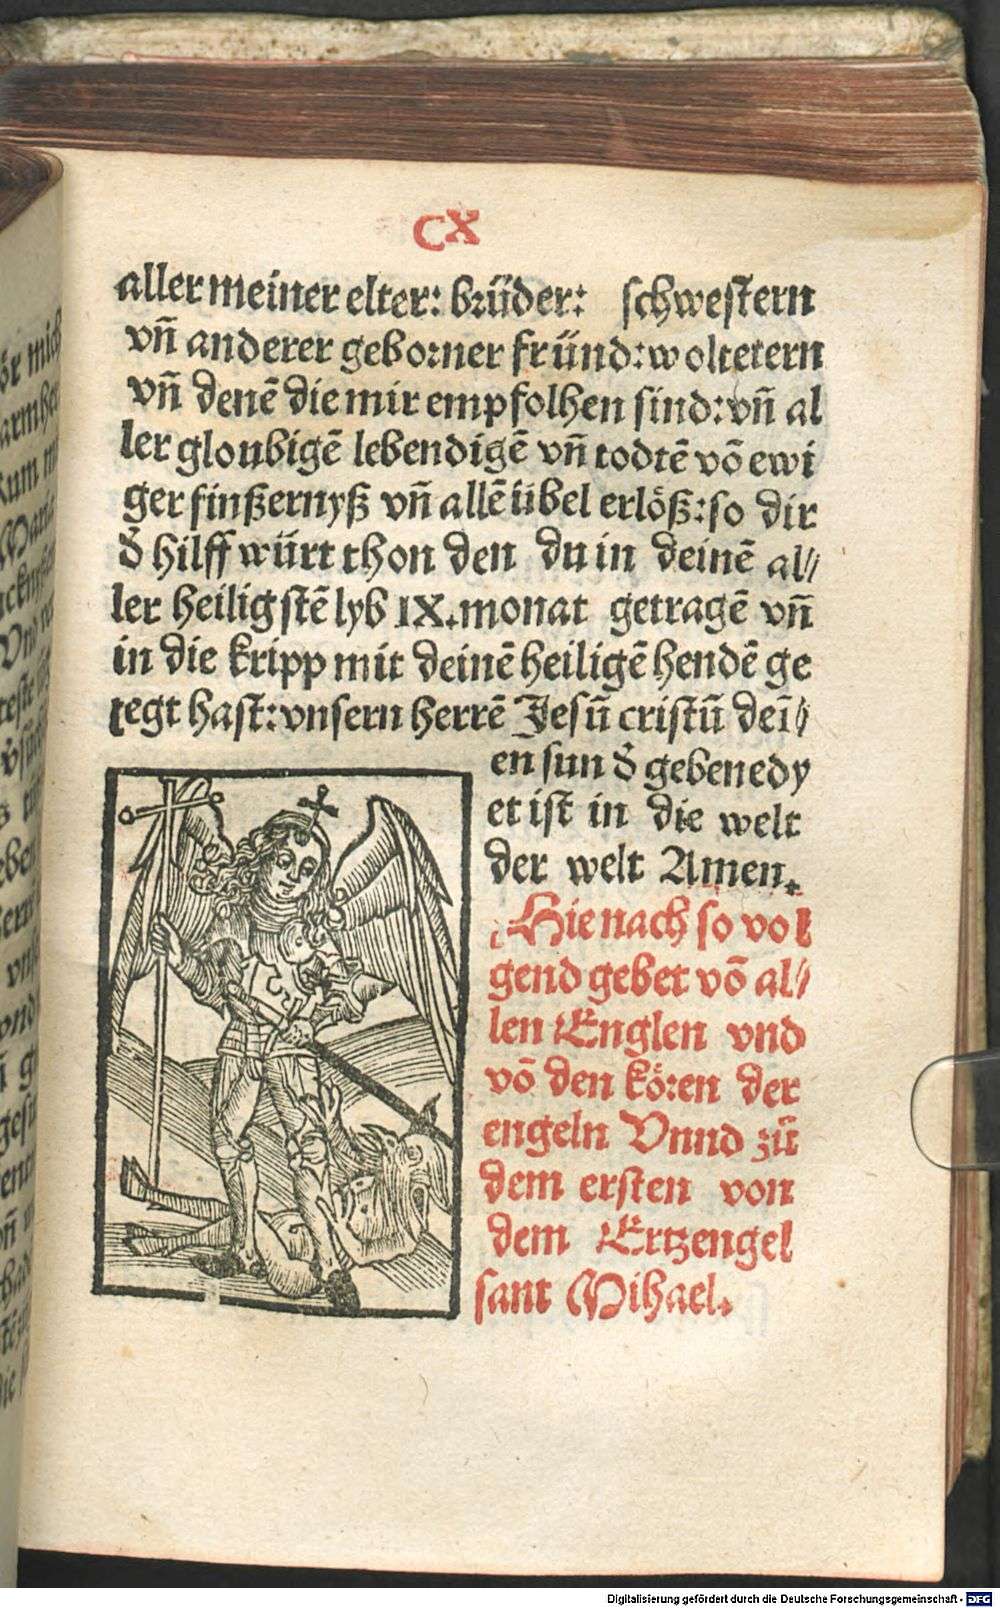 CX
aller meiner elter: brüder: schwestern
vn̄ anderer geborner fründ: woltetern
vn̄ denē die mir empfolhen sind: vn̄ al
ler gloubigē lebendigē vn̄ todtē vō ewi
ger finßernyß vn̄ allē übel erlöß: so dir
d̕ hilff würt thon den du in deinē al⸗
ler heiligstē lyb IX. monat getragē vn̄
in die kripp mit deinē heiligē hendē ge
legt hast: vnsern herrē Jesū cristū deī⸗
en sun d̕ gebenedy
et ist in die welt
der welt Amen.
Hie nach so vol
gend gebet vō al⸗
len Englen vnd
vō den kören der
engeln Vnnd zů
dem ersten von
dem Ertzengel
sant Mihael.
Digitalisierung gefördert durch die Deutsche Forschungsgemeinschaft - DFG